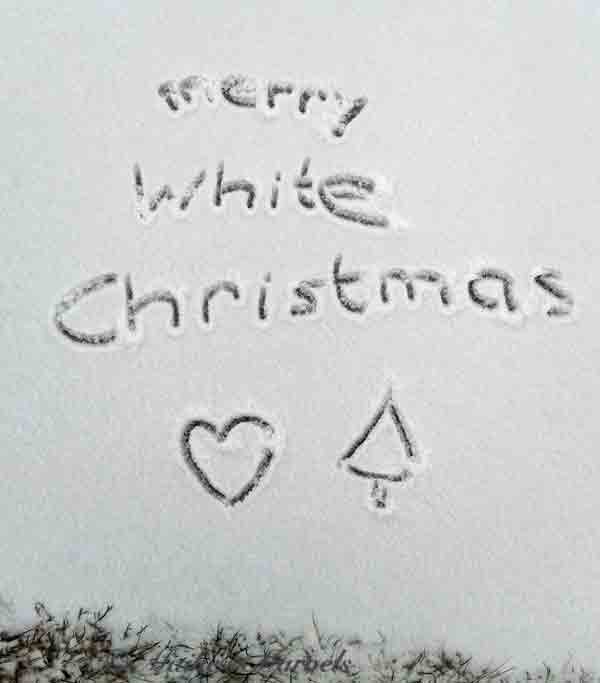 merry
White
Christmas